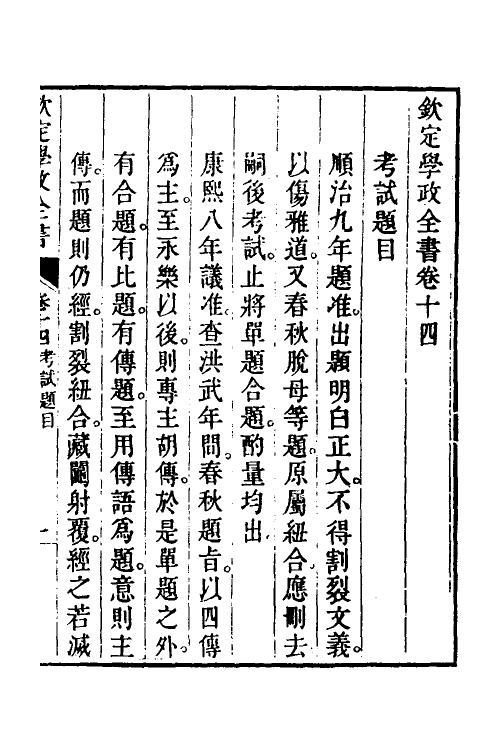 欽定學政全書卷十四
考試題目
順治九年題准。出題明白正大。不得割裂文義。
以傷雅道。又春秋脫母等題。原屬紐合。應刪去
嗣後考試。止將單題合題。酌量均出
康熙八年議准。查洪武年間。春秋題旨。以四傳
爲主。至永樂以後。則專主胡傳。於是單題之外。
有合題。有比題。有傳題。至用傳語爲題。意則主
傳。而題則仍經。割裂紐合。藏鬮射覆。經之若滅
欽定學政全書
卷十四考試題目
一